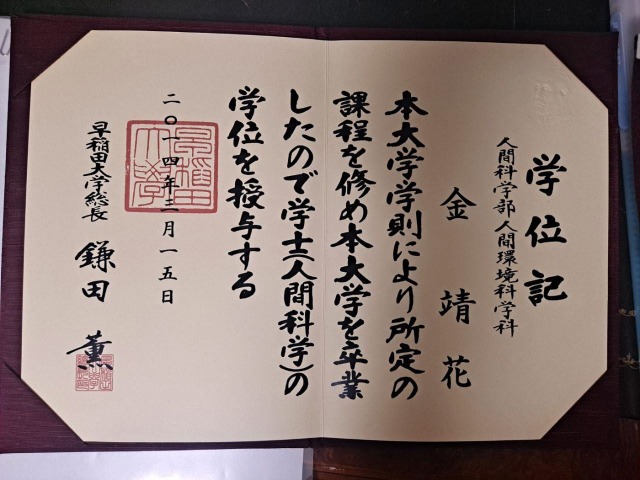 学位記
人間科学部人間環境科学科
金靖花
本大学学則により所定の
課程を修め本大学を卒業
したので学士(人間科学)の
学位を授与する
二〇一四年三月一五日
早稲田大学
早稲田大学総長
鎌田薫